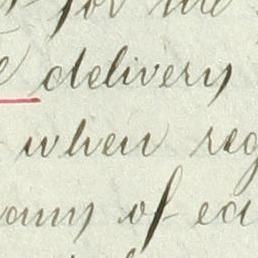 for the
delivery
when reg
any of ea